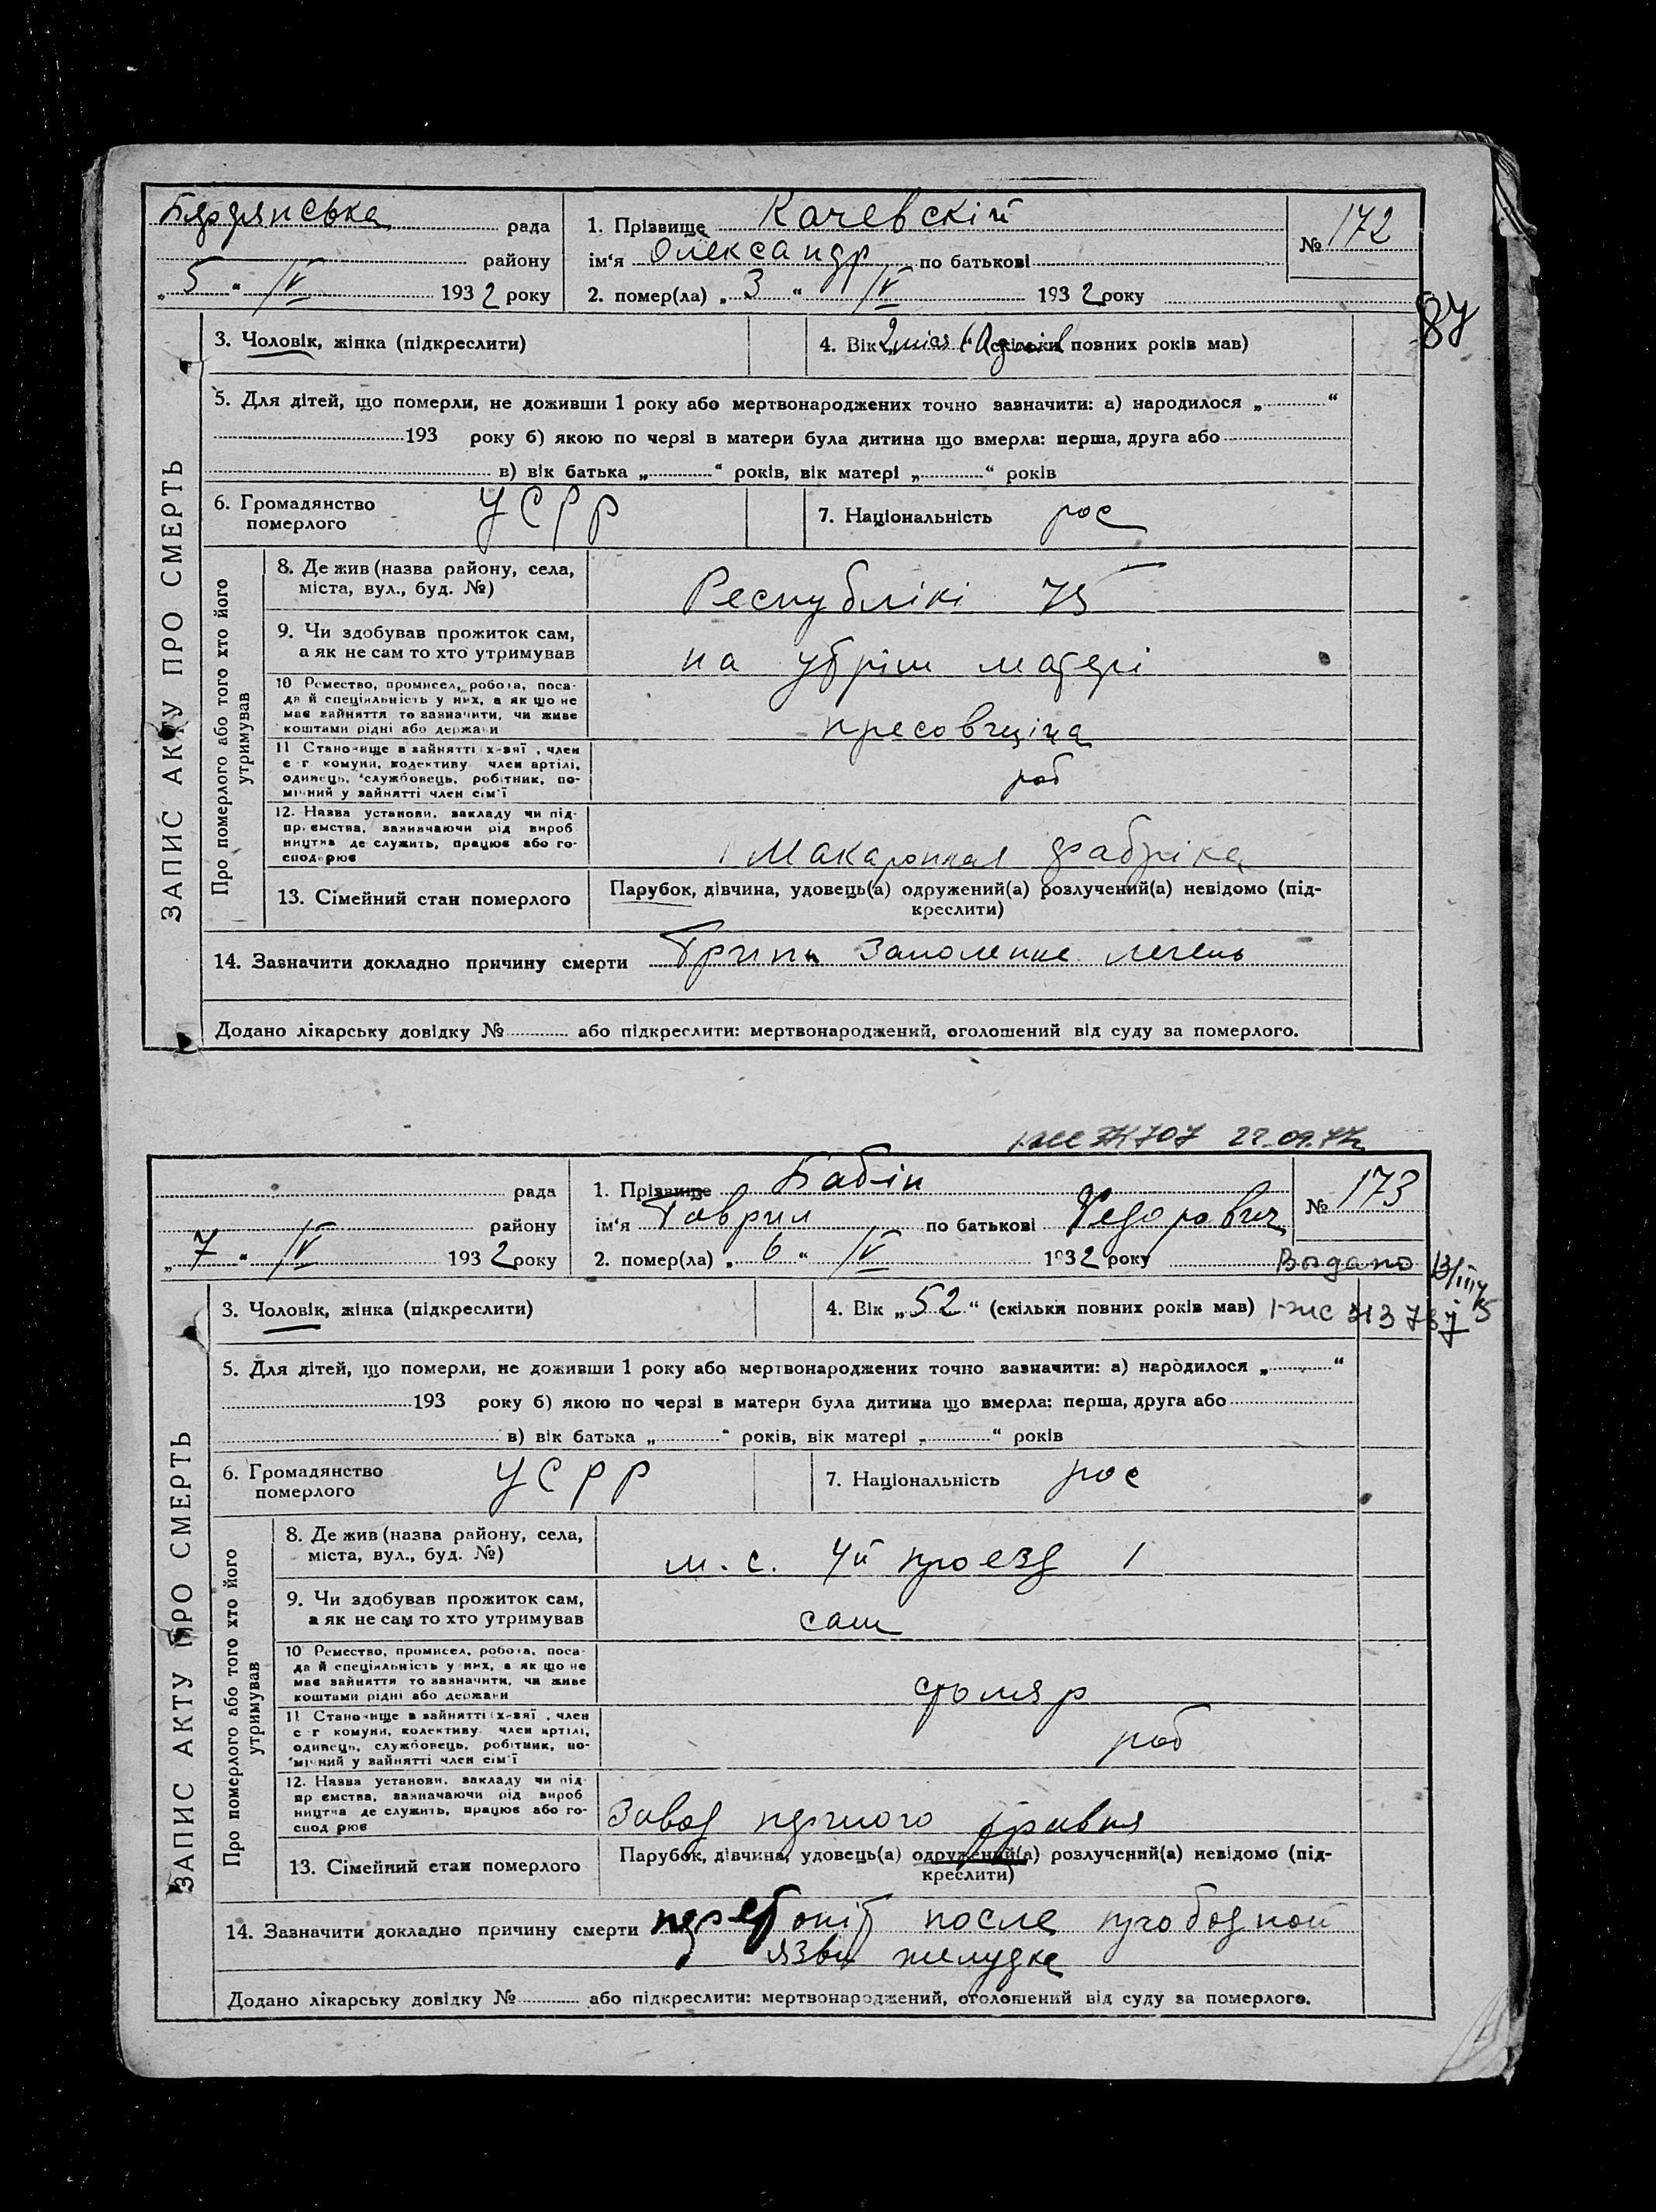 Бердянська рада
району
„ 5 “ IV 1932 року
1. Прізвище Качевскій
ім‘я Олександр по батькові
2. помер(ла) „ 3 “ IV 1932 року
№ 172
87
ЗАПИС АКТУ ПРО СМЕРТЬ
3. Чоловік, жінка (підкреслити)
4. Вік „2 міся “ (скільки повних років мав)
5. Для дітей, що померли, не доживши 1 року або мертвонароджених точно зазначити: а) народилося „ “
193 року б) якою по черзі в матери була дитина що вмерла: перша, друга або
в) вік батька „ “ років, вік матері „ “ років
6. Громадянство
померлого
УСРР
7. Національність рос
Про померлого або того хто його
утримував
8. Де жив (назва району, села,
міста, вул., буд. №)
Республікі 75
9. Чи здобував прожиток сам,
а як не сам то хто утримував
на утрім матері
10 Ремество, промисел, робота, поса-
да й спеціяльність у них, а як що не
має зайняття то зазначити, чи живе
коштами рідні або держави
пресовщіца
11 Становище в зайнятті х-вяї, член
с г комуни, колективу член артілі,
одинець, службовець, робітник, по-
мічний у зайнятті член сім‘ї
роб
12. Назва установи, закладу чи під-
пр. ємства, зазначаючи рід вироб
ництва де служить, працює або го-
сподарює
Макаронная фабріка
13. Сімейний стан померлого
Парубок, дівчина, удовець(а) одружений(а) розлучений(а) невідомо (під-
креслити)
14. Зазначити докладно причину смерти Грипп заполение легень
Додано лікарську довідку № або підкреслити: мертвонароджений, оголошений від суду за померлого.
707 22.09.77
рада
району
„ 7 “ IV 1932 року
1. Прізвище Бабін
ім‘я Гаврил по батькові Федорович
2. помер(ла) „ 6 “ IV 1932 року
№ 173
ЗАПИС АКТУ ПРО СМЕРТЬ
3. Чоловік, жінка (підкреслити)
4. Вік „52“ (скільки повних років мав)
5. Для дітей, що померли, не доживши 1 року або мертвонароджених точно зазначити: а) народилося „ “
193 року б) якою по черзі в матери була дитина що вмерла: перша, друга або
в) вік батька „ “ років, вік матері „ “ років
6. Громадянство
померлого
УСРР
7. Національність рос
Про померлого або того хто його
утримував
8. Де жив (назва району, села,
міста, вул., буд. №)
м. с. 4й проезд 1
9. Чи здобував прожиток сам,
а як не сам то хто утримував
сам
10 Ремество, промисел, робота, поса-
да й спеціяльність у них, а як що не
має зайняття то зазначити, чи живе
коштами рідні або держави
столяр
11 Становище в зайнятті х-вяї, член
с г комуни, колективу член артілі,
одинець, службовець, робітник, по-
мічний у зайнятті член сім‘ї
роб
12. Назва установи, закладу чи під-
пр ємства, зазначаючи рід вироб
ництва де служить, працює або го-
спод рює
Завод першого травня
13. Сімейний стан померлого
Парубок, дівчина, удовець(а) одружений(а) розлучений(а) невідомо (під-
креслити)
14. Зазначити докладно причину смерти перетоніт после прободной
язви желудка
Додано лікарську довідку № або підкреслити: мертвонароджений, оголошений від суду за померлого.